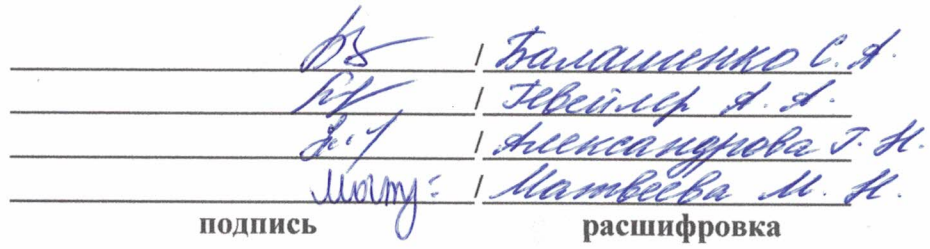 / Балашенко С. А.
/ Гевейлер А. А.
/ Александрова Г. Н.
/ Матвеева М. Н.
подпись расшифровка